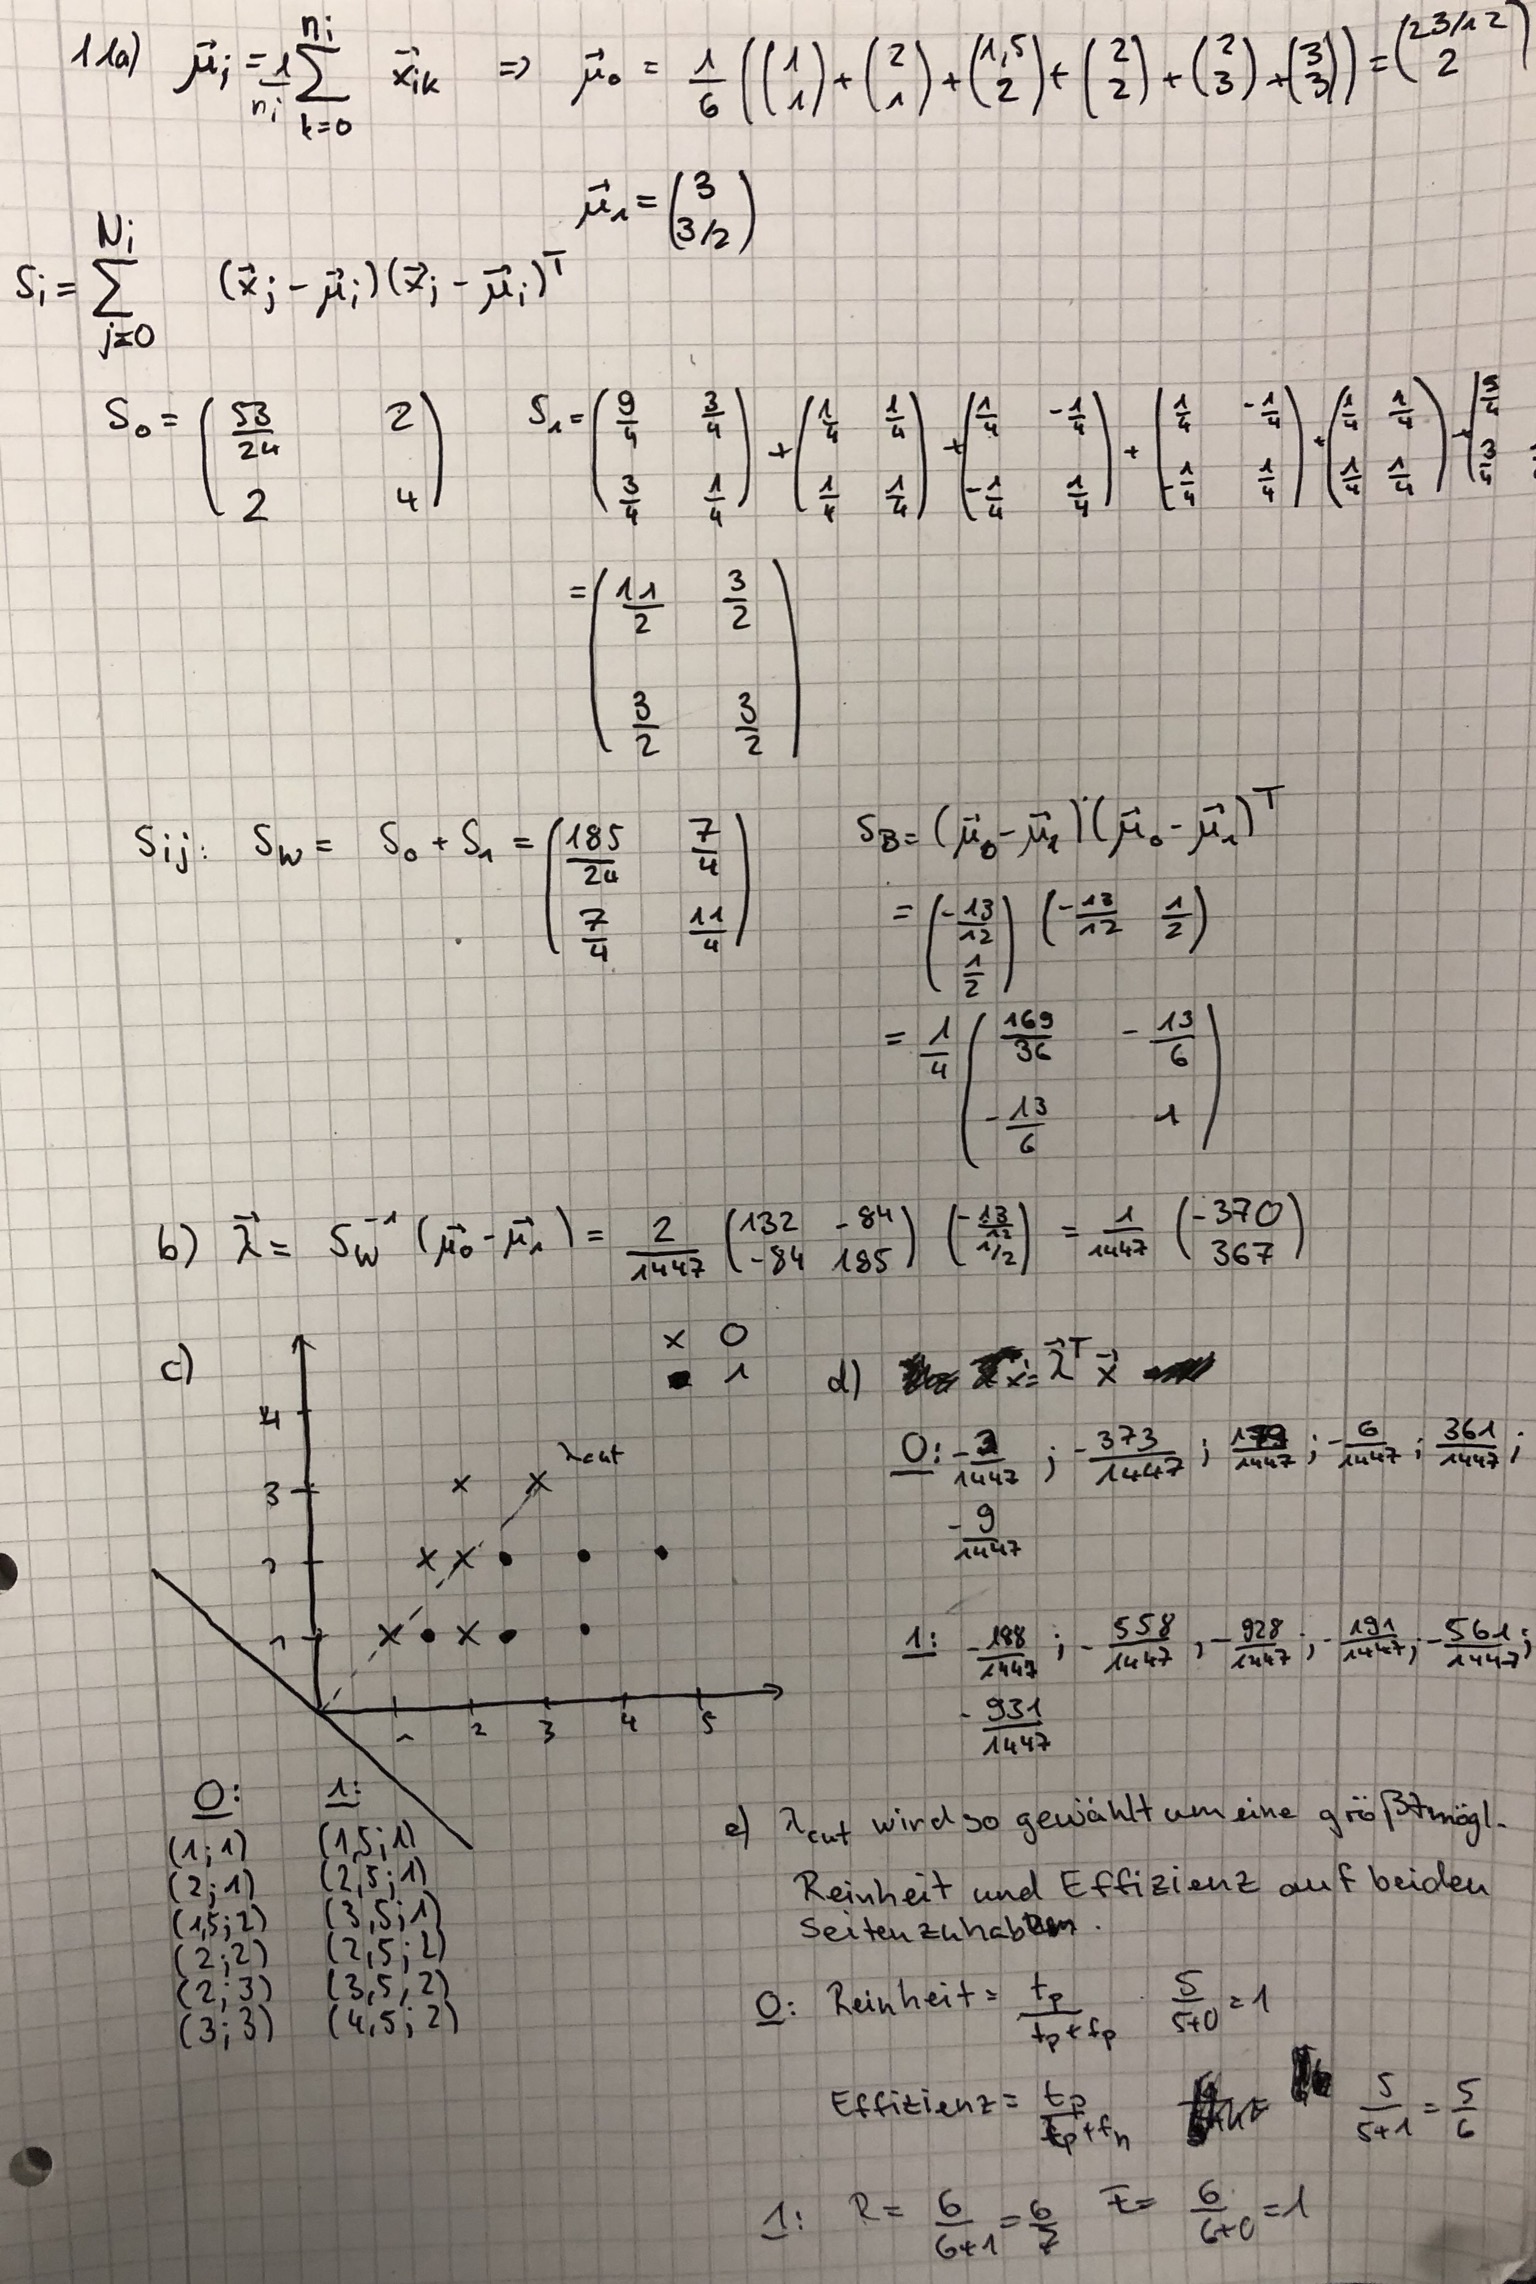 11a) μ⃗ᵢ = 1/nᵢ ∑_{k=0}^{nᵢ} x⃗ᵢₖ ⇒ μ⃗₀ = 1/6 ((1 1) + (2 1) + (1,5 2) + (2 2) + (2 3) + (3 3)) = (23/12 2)
μ⃗₁ = (3 3/2)
Sᵢ = ∑_{j=0}^{Nᵢ} (x⃗ⱼ - μ⃗ᵢ)(x⃗ⱼ - μ⃗ᵢ)ᵀ
S₀ = (53/24 2; 2 4) S₁ = (9/4 3/4; 3/4 1/4) + (1/4 1/4; 1/4 1/4) + (1/4 -1/4; -1/4 1/4) + (1/4 -1/4; -1/4 1/4) + (1/4 1/4; 1/4 1/4) +
= (11/2 3/2; 3/2 3/2)
Sij: S_W = S₀ + S₁ = (185/24 7/4; 7/4 11/4) S_B = (μ⃗₀ - μ⃗₁)(μ⃗₀ - μ⃗₁)ᵀ
= (-13/12 1/2) (-13/12 1/2)
= 1/4 (169/36 -13/6; -13/6 1)
b) λ⃗ = S_W⁻¹ (μ⃗₀ - μ⃗₁) = 2/1447 (132 -84; -84 185) (-13/12 1/2) = 1/1447 (-370 367)
c)
x 0
• 1
4
3
2
1
λcut
1 2 3 4 5
0: 1:
(1;1) (1,5;1)
(2;1) (2,5;1)
(1,5;2) (3,5;1)
(2;2) (2,5;2)
(2;3) (3,5,2)
(3;3) (4,5;2)
d) λ⃗ᵀ x⃗
0: -3/1447 ; -373/1447 ; 179/1447 ; -6/1447 ; 361/1447 ;
-9/1447
1: -188/1447 ; -558/1447 ; -928/1447 ; -191/1447 ; -561/1447 ;
-931/1447
e) λcut wird so gewählt um eine größtmögl.
Reinheit und Effizienz auf beiden
Seiten zu haben.
0: Reinheit = tp/(tp+fp) 5/(5+0) = 1
Effizienz = tp/(tp+fn) 5/(5+1) = 5/6
1: R = 6/(6+1) = 6/7 E = 6/(6+0) = 1